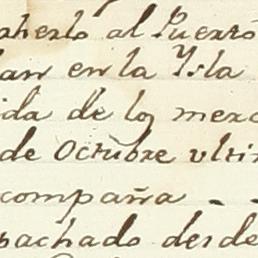 aherlo al Puerto
lan en la Ysla
ida de los merc
de Octubre ulti
compaña - -
pachado desde